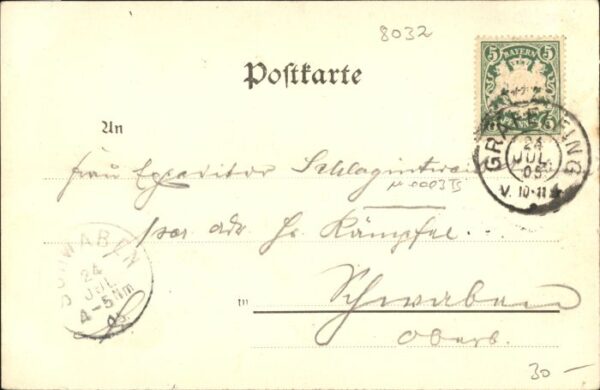 8032
5 BAYERN 5
Postkarte
GRÄFELFING
24
JUL.
05
V. 10-11
An
Frau Expeditor Schlagintwein
per adr Hr. Kämpfel.
SCHWABEN
24
JUL
4-5 Nm
05.
in Schwaben
Oberb.
30 –